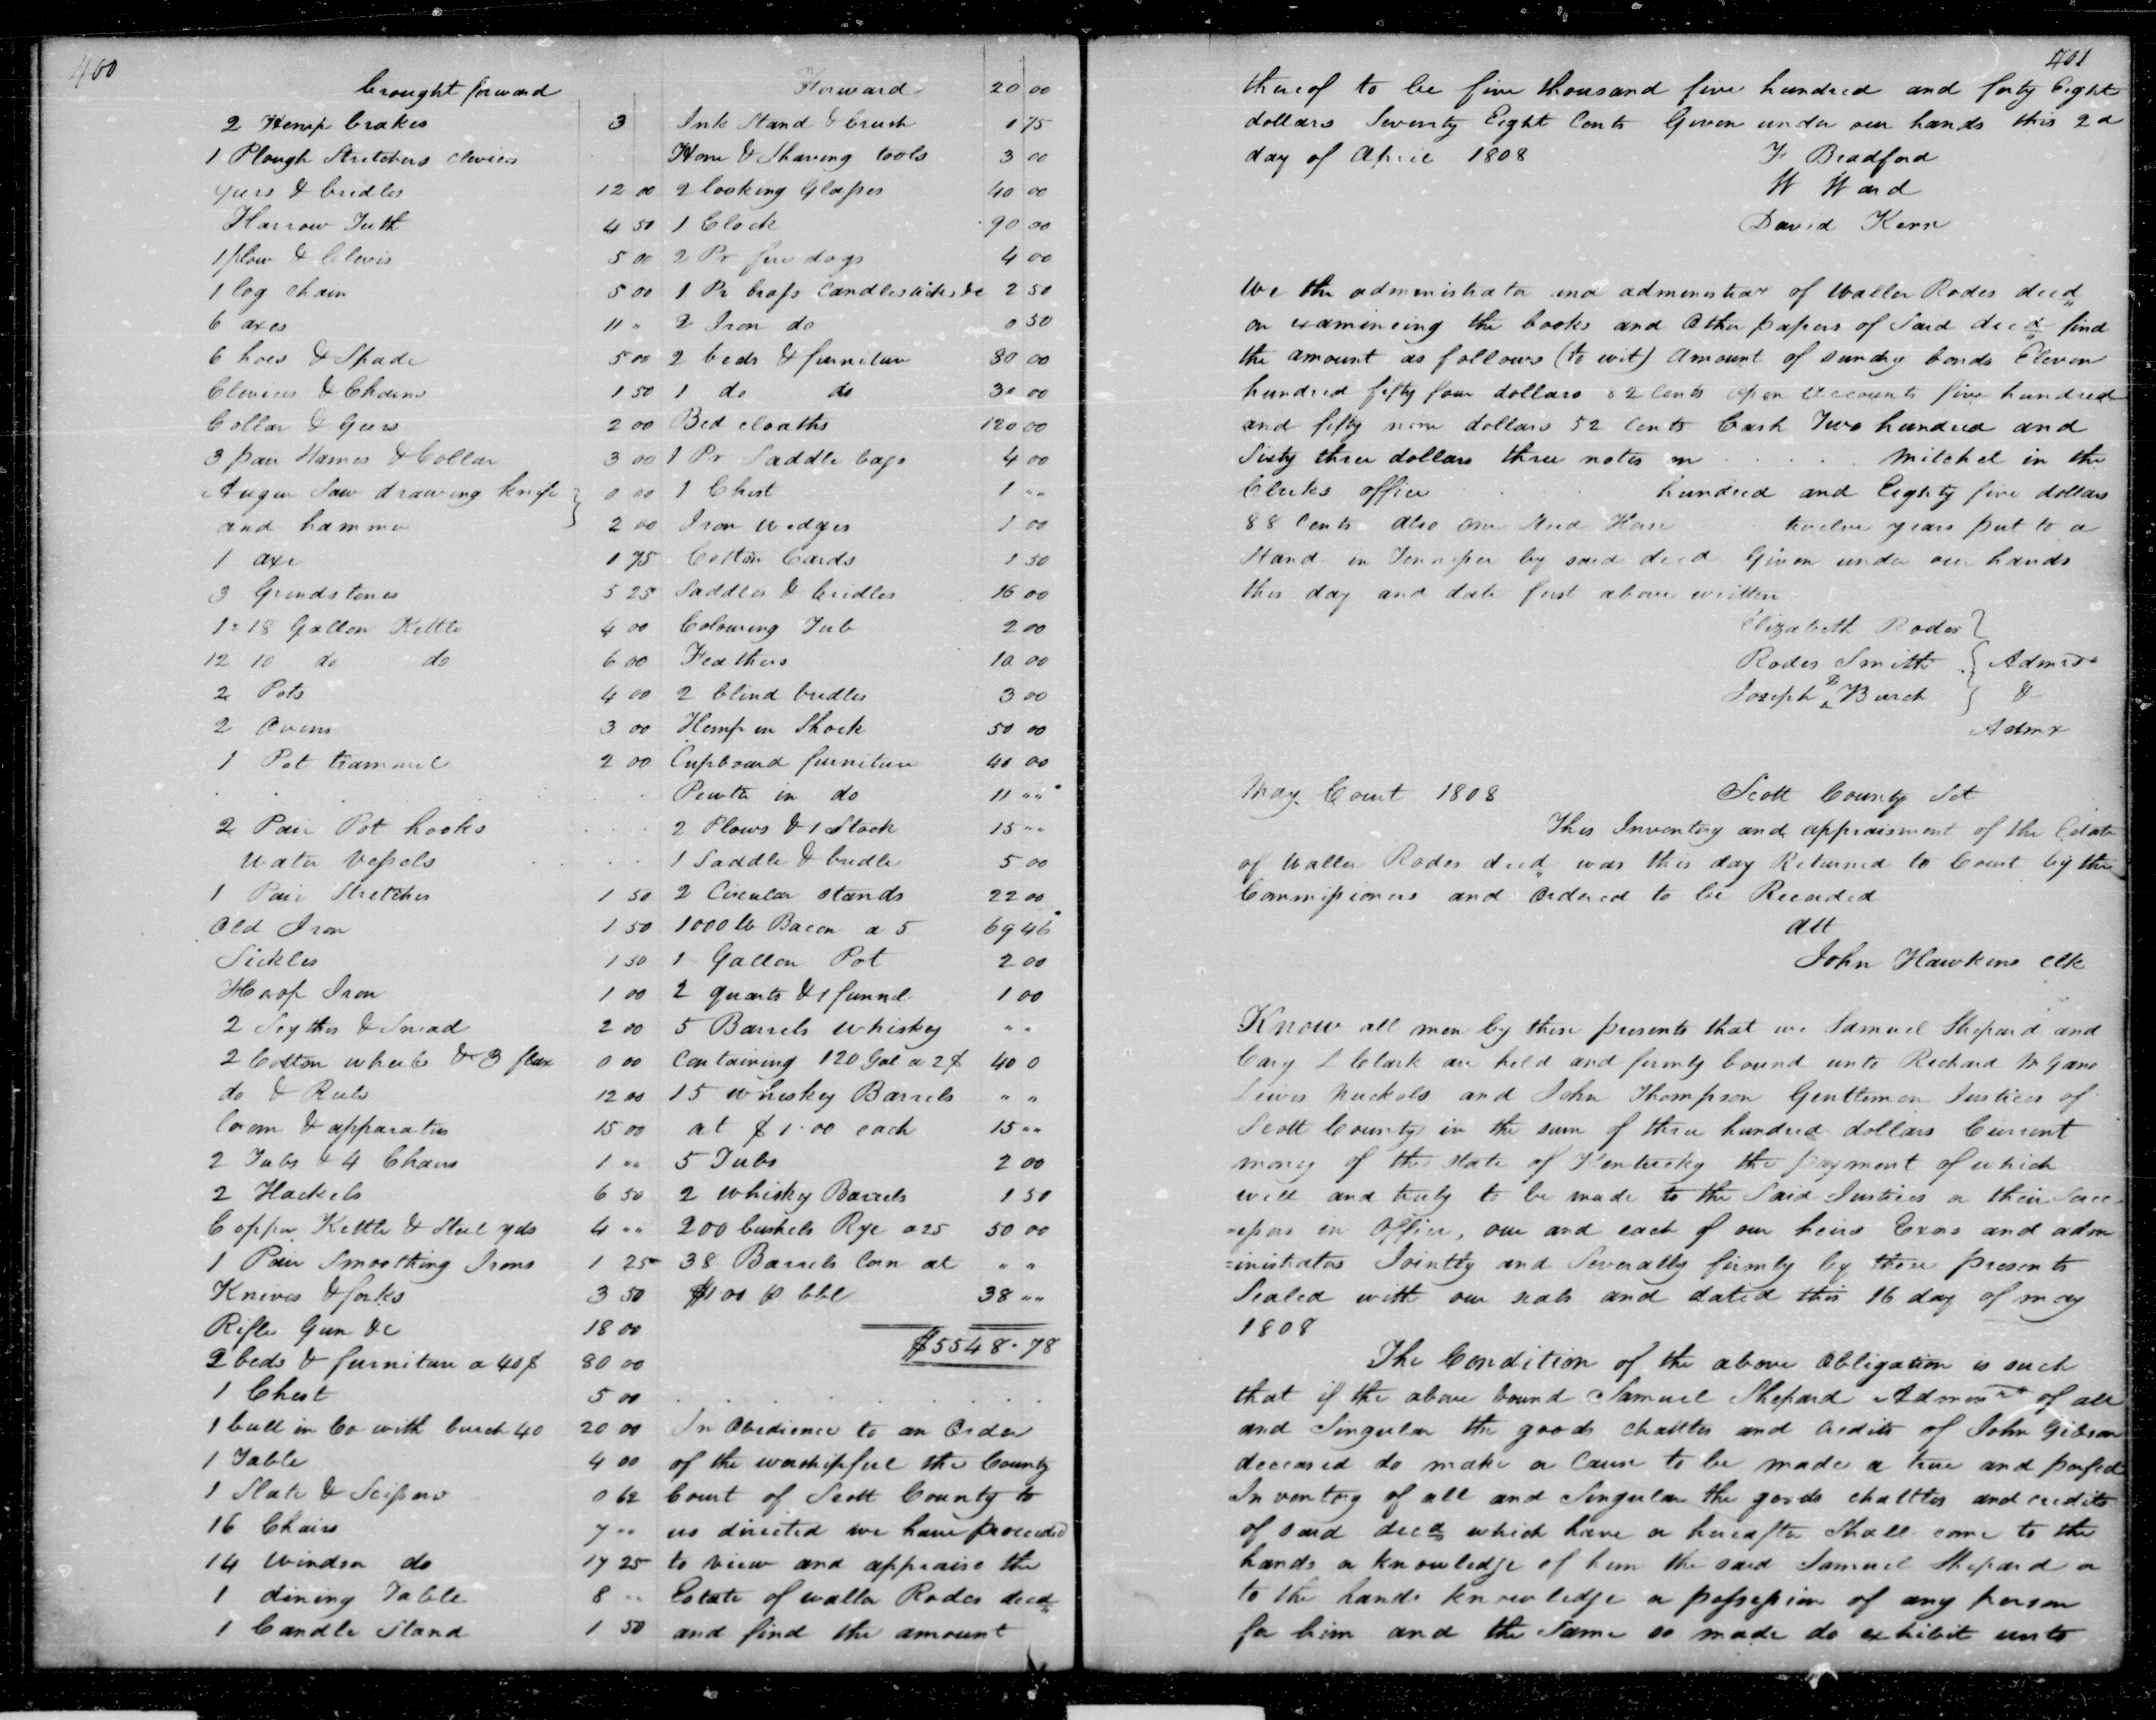 400
brought forward
2 Hemp brakes 3
1 Plough Stretchers clevices
gears & bridles 12 00
Harrow Teeth 4 50
1 plow & Clevis 5 00
1 log chain 5 00
6 axes 11 "
6 hoes & Spade 5 00
Clevices & Chains 1 50
Collar & Gears 2 00
3 pair Hames & Collar 3 00
Augur Saw drawing knife 0 00
and hammer 2 00
1 axe 1 75
3 Grindstones 5 25
1 = 18 Gallon Kettle 4 00
12 10 do do 6 00
2 Pots 4 00
2 Ovens 3 00
1 Pot trammel 2 00
2 Pair Pot hooks
Water Vessels
1 Pair Stretchers 1 50
Old Iron 1 50
Sickles 1 50
Hoop Iron 1 00
2 Scythes & Snead 2 00
2 Cotton wheels & 3 flax 0 00
do & Reels 12 00
Loom & apparatus 15 00
2 Tubs & 4 Chairs 1 " "
2 Hackels 6 50
Copper Kettle & Steel yds 4 " "
1 Pair Smoothing Irons 1 25
Knives & forks 3 50
Rifle Gun &c 18 00
2 beds & furniture a 40$ 80 00
1 Chest 5 00
1 bull in Co with burch 40 20 00
1 Table 4 00
1 Slate & Scissors 0 62
16 Chairs 7 " "
14 Windsor do 17 25
1 dining Table 8 " "
1 Candle Stand 1 50
Forward 20 00
Ink Stand & brush 1 75
Hone & Shaving tools 3 00
2 looking Glasses 40 00
1 Clock 90 00
2 Pr fire dogs 4 00
1 Pr brass Candlesticks &c 2 50
2 Iron do 0 50
2 beds & furniture 80 00
1 do do 30 00
Bed cloaths 120 00
1 Pr Saddle bags 4 00
1 Chest 1 " "
Iron Wedges 1 00
Cotton Cards 1 50
Saddles & bridles 16 00
Colouring Tub 2 00
Feathers 10 00
2 blind bridles 3 00
Hemp in Shock 50 00
Cupboard furniture 40 00
Pewter in do 11 " "
2 Plows & 1 Stock 15 " "
1 Saddle & bridle 5 00
2 Circular Stands 22 00
1000 lb Bacon a 5 69 46
1 Gallon Pot 2 00
2 quarts & 1 funnel 1 00
5 Barrels Whiskey " "
Containing 120 Gal a 2$ 40 0
15 whiskey Barrels " "
at $1.00 each 15 " "
5 Tubs 2 00
2 Whisky Barrels 1 50
200 bushels Rye a 25 50 00
38 Barrels Corn at " "
$1 00 p bbl 38 " "
$5548.78
In Obedience to an Order
of the worshipful the County
Court of Scott County to
us directed we have proceeded
to view and appraise the
Estate of Waller Rodes decd
and find the amount
401
thereof to be five thousand five hundred and forty Eight
dollars Seventy Eight Cents Given under our hands this 2d
day of April 1808 F Bradford
W Ward
David Kerr
We the administrator and administrar of Waller Rodes decd
on examineing the books and Other papers of Said decd find
the amount as follows (to wit) Amount of sundry bonds Eleven
hundred fifty four dollars 82 Cents Open Accounts five hundred
and fifty nine dollars 52 Cents Cash Two hundred and
Sixty three dollars three notes on Mitchel in the
Clerks office hundred and Eighty five dollars
88 Cents also one Stud Horse twelve years put to a
Stand in Tennessee by said decd Given under our hands
this day and date first above written
Elizabeth Rodes
Rodes Smith Admrs
Joseph D Burch &
Admx
May Court 1808 Scott County Sct
This Inventory and appraisment of the Estate
of Waller Rodes decd was this day Returned to Court by the
Commissioners and Ordered to be Recorded
Att
John Hawkins Clk
Know all men by these presents that we Samuel Shepard and
Cary L Clark are held and firmly bound unto Richard M Gano
Lewis Nuckols and John Thompson Gentlemen Justices of
Scott County in the sum of three hundred dollars Current
money of the State of Kentucky the payment of which
well and truly to be made to the Said Justices or their Succ-
=essors in Office, our and each of our heirs Exrs and adm
=inistrators Jointly and Severally firmly by these presents
Sealed with our seals and dated this 16 day of May
1808
The Condition of the above Obligation is such
that if the above bound Samuel Shepard Adminrt of all
and Singular the goods chattles and credits of John Gibson
deceased do make or Cause to be made a true and perfect
Inventory of all and Singular the goods chattles and credits
of said decd which have or hereafter Shall come to the
hands or knowledge of him the said Samuel Shepard or
to the hands knowledge or possession of any person
for him and the Same so made do exhibit unto